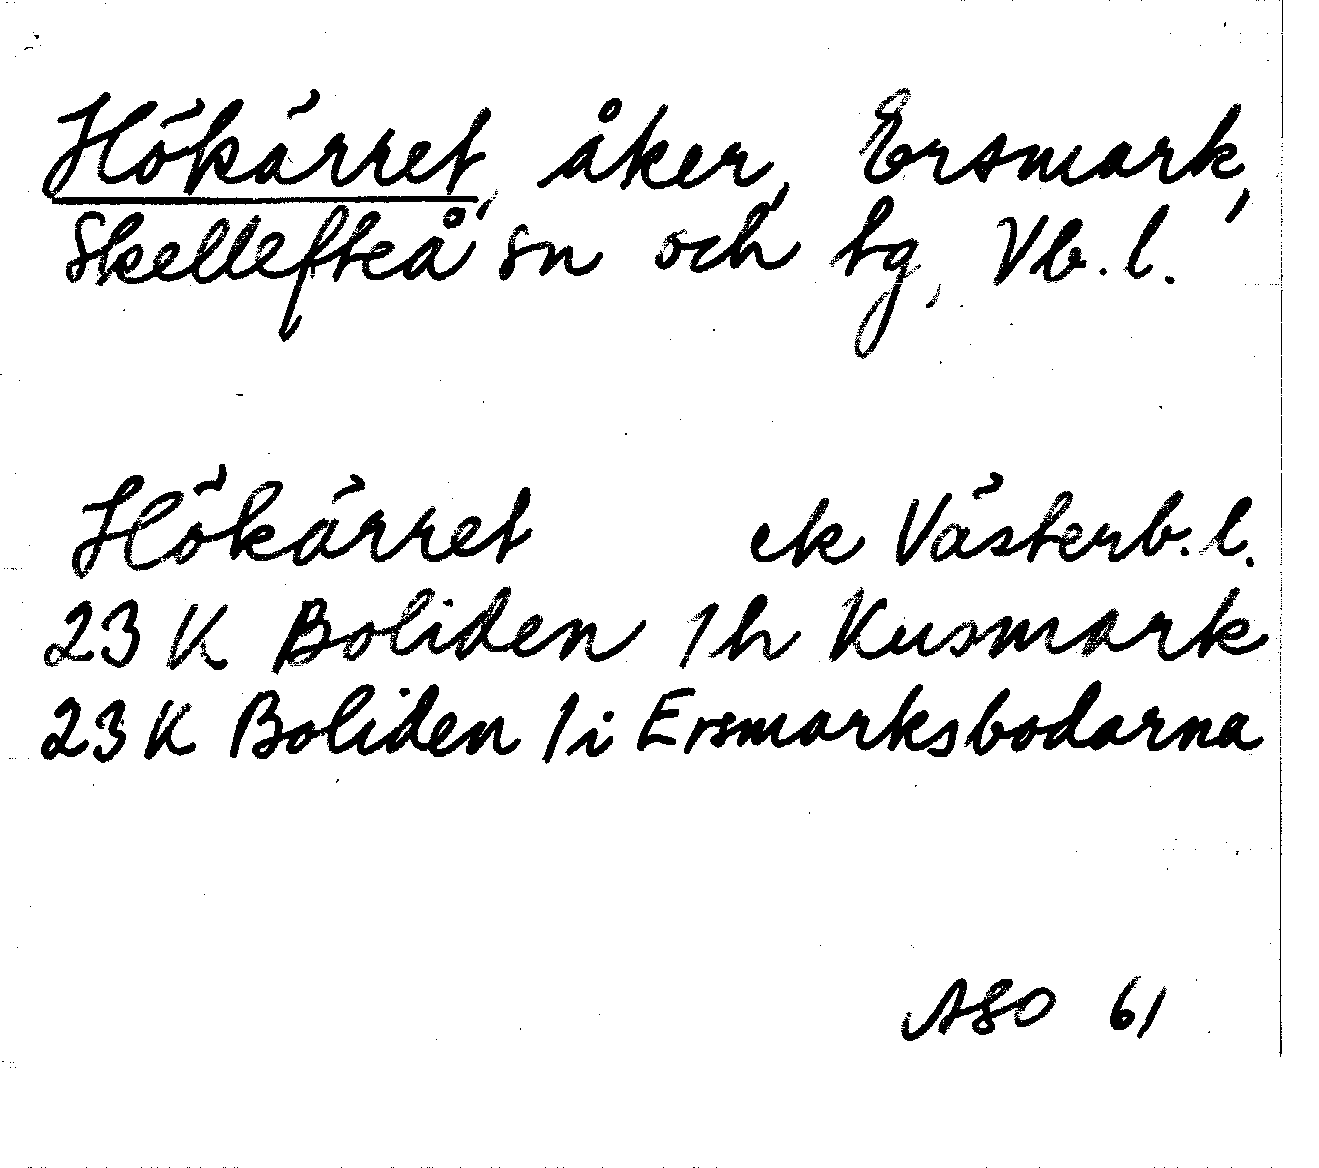 Hökärret, åker, Ersmark,
Skellefteå sn och tg, Vb. l.
Hökärret ek Västerb. l.
23 K Boliden 1h Kusmark
23 K Boliden 1i Ersmarksbodarna
ASO 61